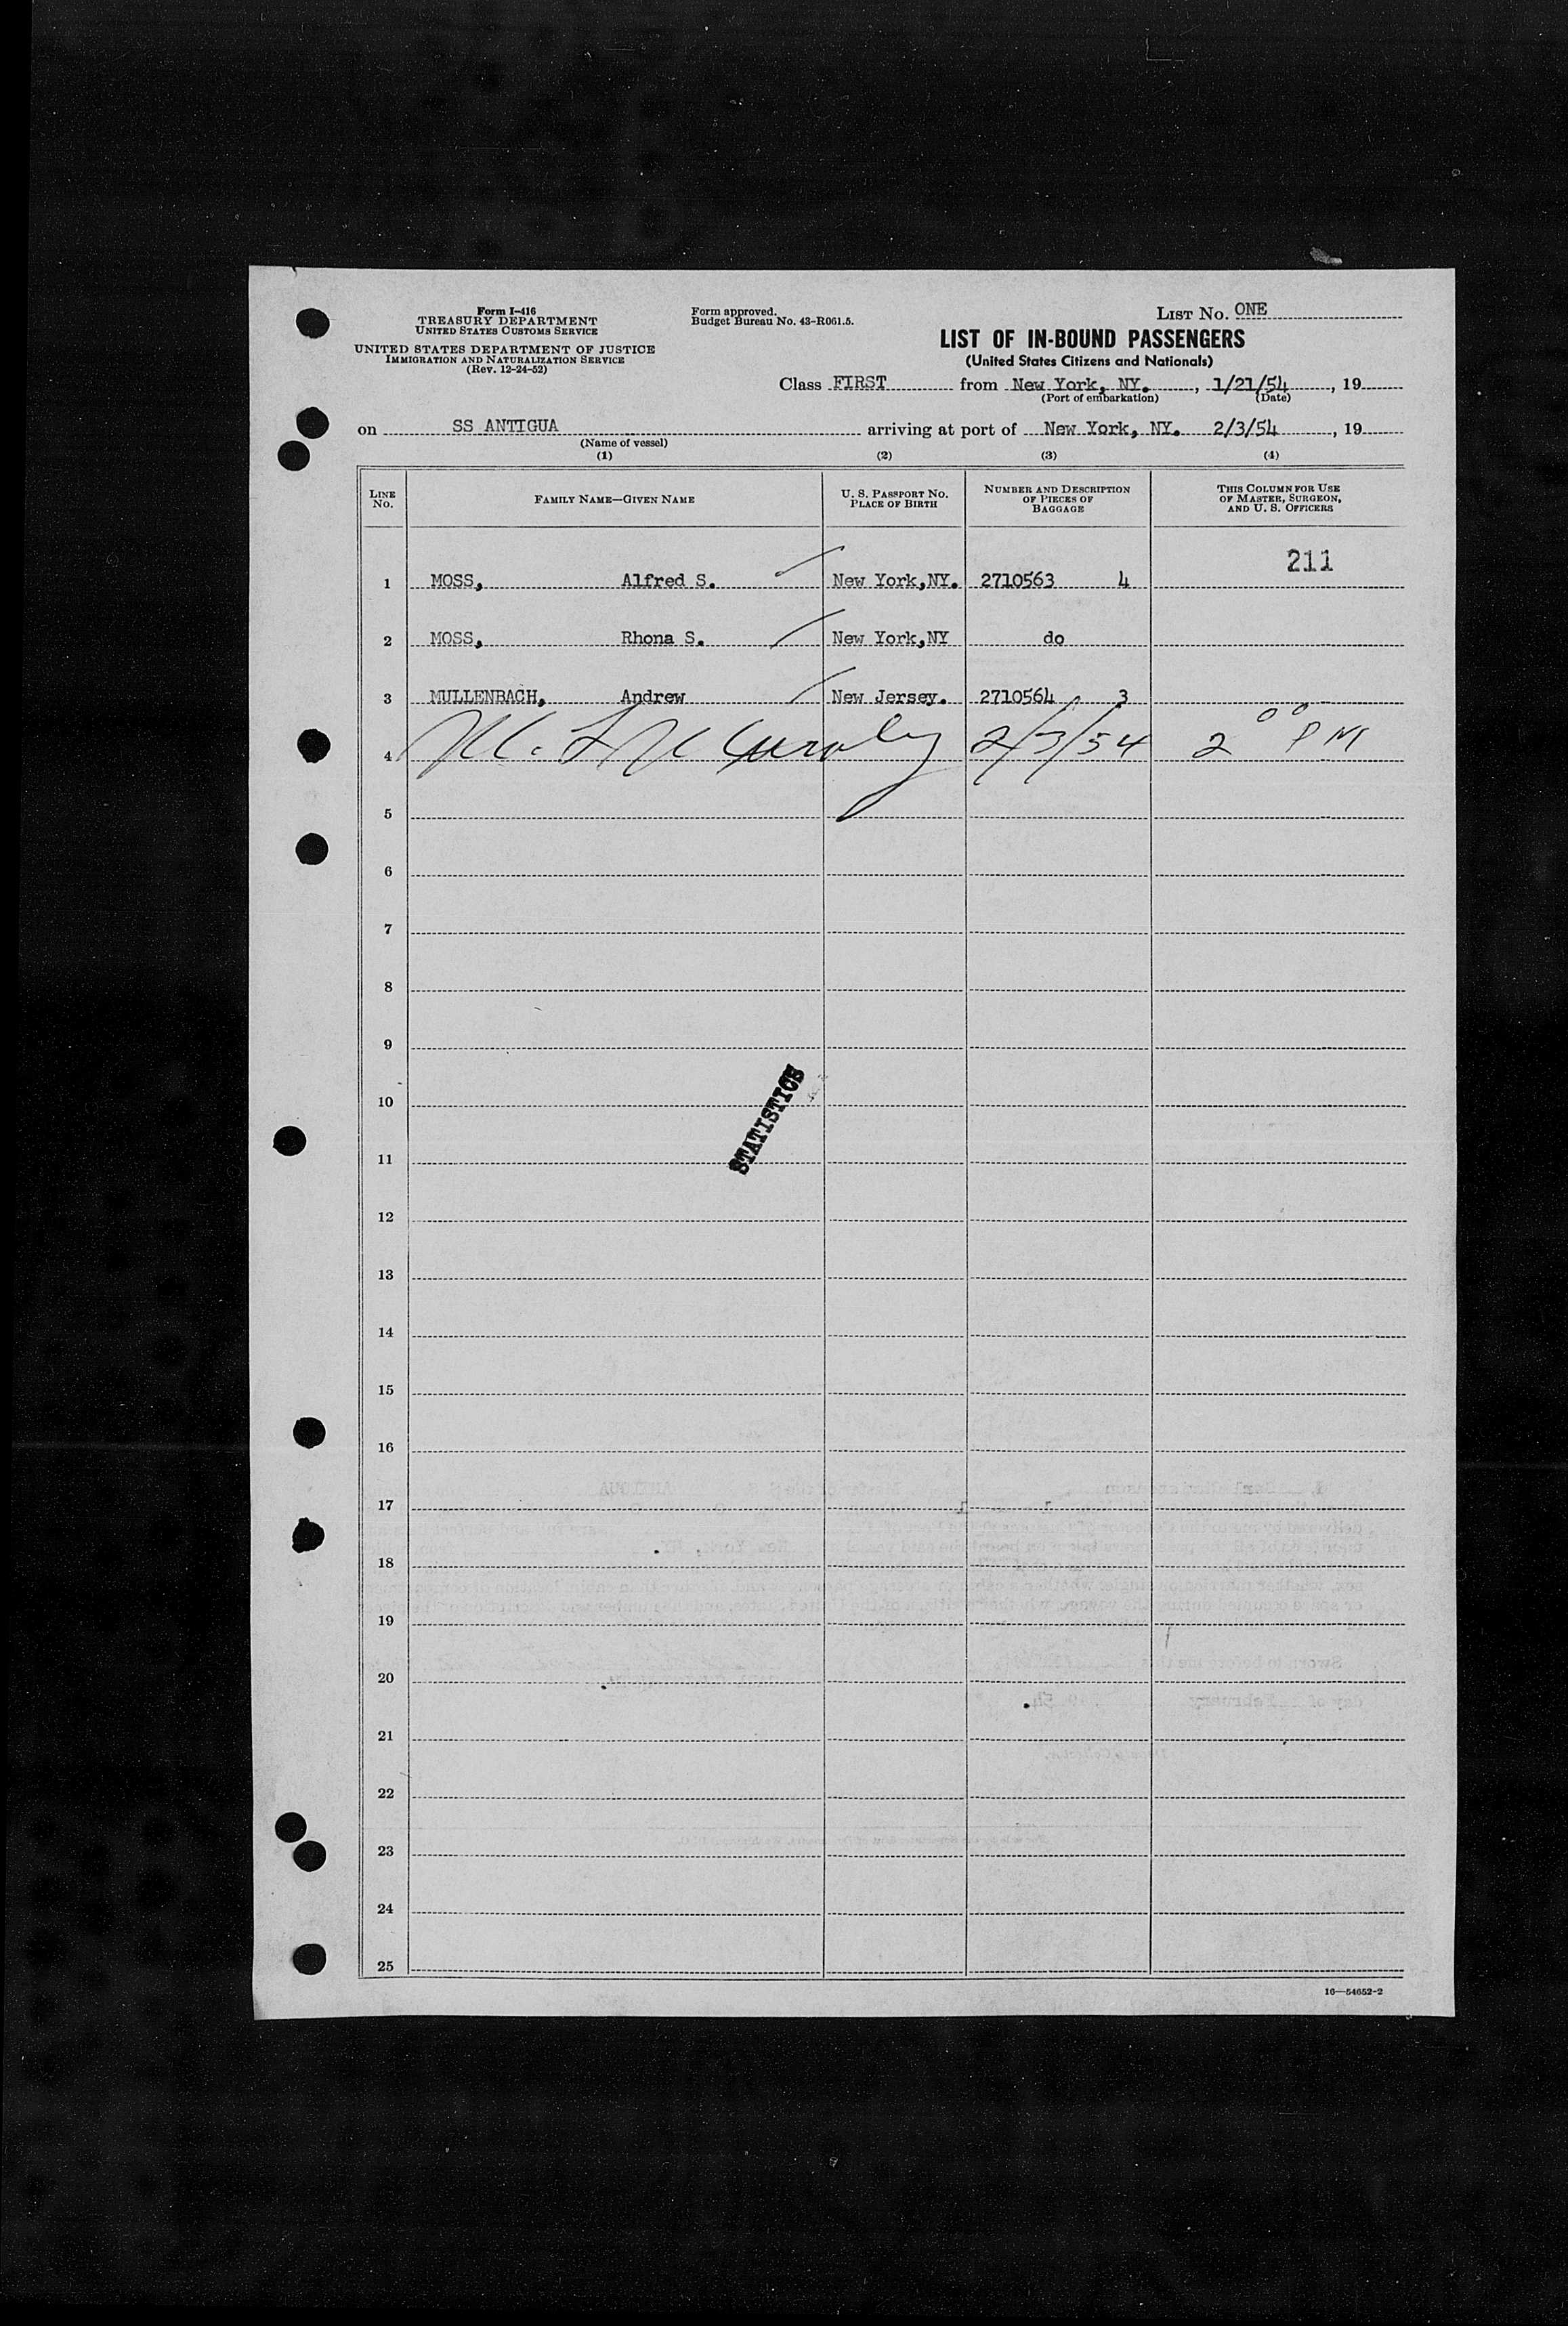 Form I-416
TREASURY DEPARTMENT
UNITED STATES CUSTOMS SERVICE
UNITED STATES DEPARTMENT OF JUSTICE
IMMIGRATION AND NATURALIZATION SERVICE
(Rev. 12-24-52)
Form approved.
Budget Bureau No. 43-R061.5.
LIST NO. ONE
LIST OF IN-BOUND PASSENGERS
(United States Citizens and Nationals)
Class FIRST from New York, NY., 1/21/54, 19
(Port of embarkation) (Date)
on SS ANTIGUA arriving at port of New York, NY. 2/3/54, 19
(Name of vessel)
(1) (2) (3) (4)
LINE NO. FAMILY NAME—GIVEN NAME U. S. PASSPORT NO. PLACE OF BIRTH NUMBER AND DESCRIPTION OF PIECES OF BAGGAGE THIS COLUMN FOR USE OF MASTER, SURGEON, AND U. S. OFFICERS
211
1 MOSS, Alfred S. New York,NY. 2710563 4
2 MOSS, Rhona S. New York,NY do
3 MULLENBACH, Andrew New Jersey. 2710564 3
4 2/3/54 2 00 PM
5
6
7
8
9
10
STATISTICS
11
12
13
14
15
16
17
18
19
20
21
22
23
24
25
16—54652-2